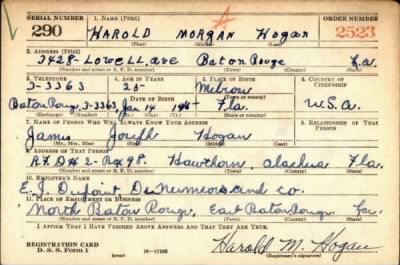 SERIAL NUMBER 1. NAME (Print) ORDER NUMBER
290 HAROLD MORGAN Hogan A 2523
(First) (Middle) (Last)
2. ADDRESS (Print)
3428- Lowell ave Baton Rouge La.
(Number and street or R. F. D. number) (Town) (County) (State)
3. TELEPHONE 4. AGE IN YEARS 5. PLACE OF BIRTH 6. COUNTRY OF CITIZENSHIP
3-3363 25-
DATE OF BIRTH
Baton Roug. 3-3363 Jan 14 Fla. U.S.A.
7. NAME OF PERSON WHO WILL ALWAYS KNOW YOUR ADDRESS 8. RELATIONSHIP OF THAT PERSON
James Joseph Hogan
(Mr., Mrs., Miss) (First) (Middle) (Last)
9. ADDRESS OF THAT PERSON
R.F.D # 2- Bx 98. Hawthorn, Alachua Fla.
(Number and street or R. F. D. number) (Town) (County) (State)
10. EMPLOYER'S NAME
E.I. Dupoint De Numiors and co.
11. PLACE OF EMPLOYMENT OR BUSINESS
North Baton Roug, East Baton Roug La.
(Number and street or R. F. D. number) (Town) (County) (State)
I AFFIRM THAT I HAVE VERIFIED ABOVE ANSWERS AND THAT THEY ARE TRUE.
REGISTRATION CARD
D. S. S. Form 1 16-17105 Harold M. Hogan
(Registrant's signature)